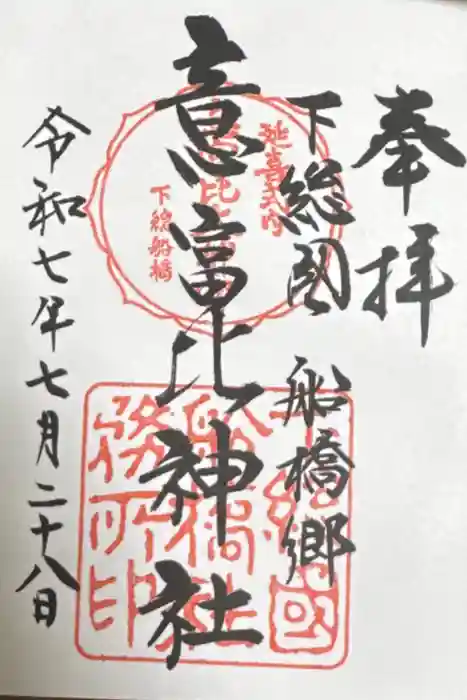 奉拝
下総國 船橋郷
意富比神社
令和七年七月二十八日
延喜式内
下総船橋
務所印